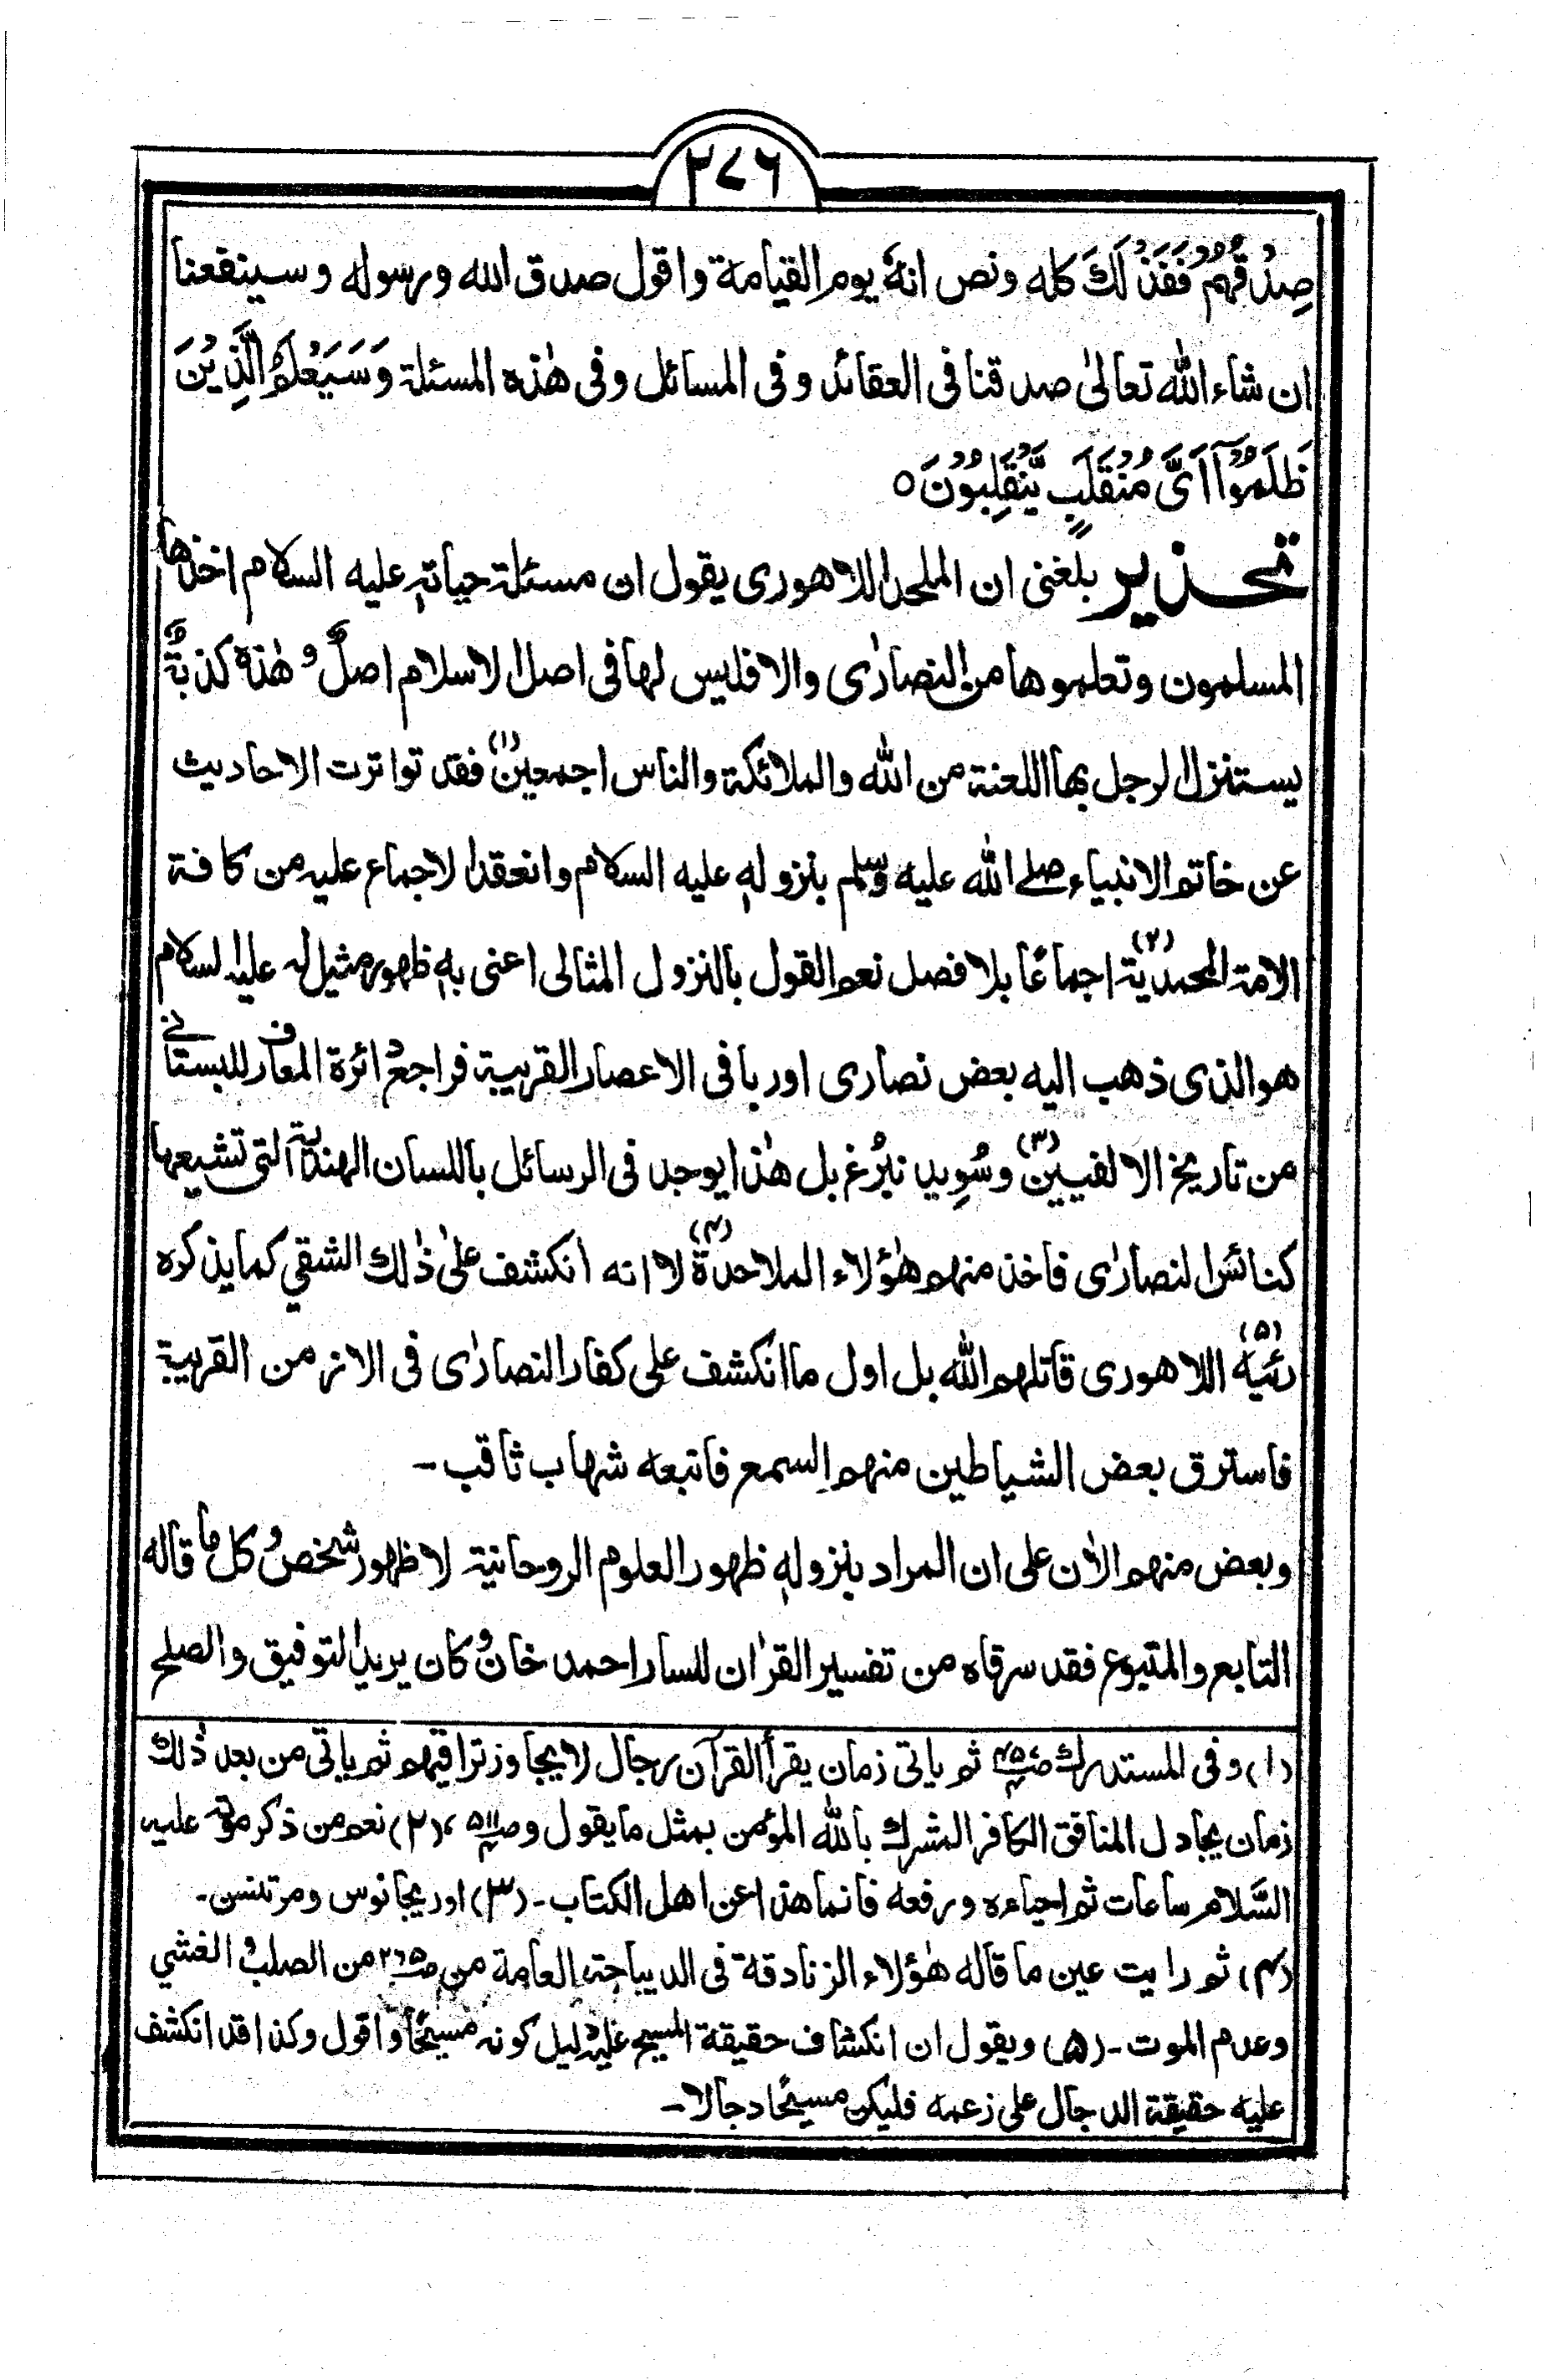 ٢٧٦
صِدْقُهُمْ فَفَذْلَكَ كله ونص انهٗ يوم القيامة واقول صدق الله ورسوله وسينفعنا
ان شاء الله تعالىٰ صدقنا فى العقائد وفى المسائل وفى هٰذه المسئلة وَسَيَعْلَمُ الَّذِيْنَ
ظَلَمُوْٓا اَىَّ مُنْقَلَبٍ يَّنْقَلِبُوْنَ ٥
تحذير بلغنى ان الملحد اللاهورى يقول ان مسئلة حياتهٖ عليه السلام اخذها
المسلمون وتعلموها من النصارٰى والا فليس لها فى اصل الاسلام اصلٌ وهٰذهٖ كذبةٌ
يستنزل الرجل بها اللعنة من الله والملائكة والناس اجمعين (١) فقد تواترت الاحاديث
عن خاتم الانبياء صلے الله عليه وسلم بنزولهٖ عليه السلام وانعقد الاجماع عليه من كافة
الامة المحمدية (٢) اجماعًا بلا فصل نعم القول بالنزول المثالى اعنى بهٖ ظهور مثيل له عليه السلام
هو الذى ذهب اليه بعض نصارى اوربا فى الاعصار القريبة فراجع دائرة المعارف للبستانے
من تاريخ الالفيين (٣) وسُوِيدنبُرغ بل هٰذا يوجد فى الرسائل باللسان الهندية التى تشيعها
كنائس النصارٰى فاخذ منهم هٰؤلاء الملاحدة (٤) لا انه انكشف علىٰ ذٰلك الشقي كما يذكره
رئيه (٥) اللاهورى قاتلهم الله بل اول ما انكشف على كفار النصارٰى فى الازمن القريبة
فاسترق بعض الشياطين منهم السمع فاتبعه شهاب ثاقب -
وبعض منهم الاٰن على ان المراد بنزولهٖ ظهور العلوم الروحانية لا ظهور شخص وكل ما قاله
التابع والمتبوع فقد سرقاه من تفسير القراٰن للسار احمد خان وكان يريد التوفيق والصلح
(١) وفى المستدرك ثم ياتى زمان يقرأ القرآن رجال لا يجاوز تراقيهم ثم ياتى من بعد ذٰلك
زمان يجادل المنافق الكافر المشرك بالله المؤمن بمثل ما يقول (٢) نعم من ذكر موته عليه
السَّلام ساعات ثم احياءه ورفعه فانما هذا عن اهل الكتاب - (٣) اوريجانوس ومرتنسن -
(٤) ثم رايت عين ما قاله هٰؤلاء الزنادقة فى الديباجة العامة من من الصلب والغشي
وعدم الموت - (٥) ويقول ان انكشاف حقيقة المسيح عليه دليل كونه مسيحًا واقول وكذا قد انكشف
عليه حقيقة الدجال على زعمه فليكن مسيحًا دجالا -